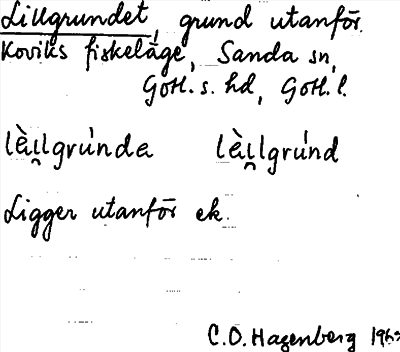 Lillgrundet, grund utanför
Koviks fiskeläge, Sanda sn,
Gotl. s. hd, Gotl. l.
lèi̯llgrúnda lèi̯llgrúnd
Ligger utanför ek.
C.O. Hagenberg